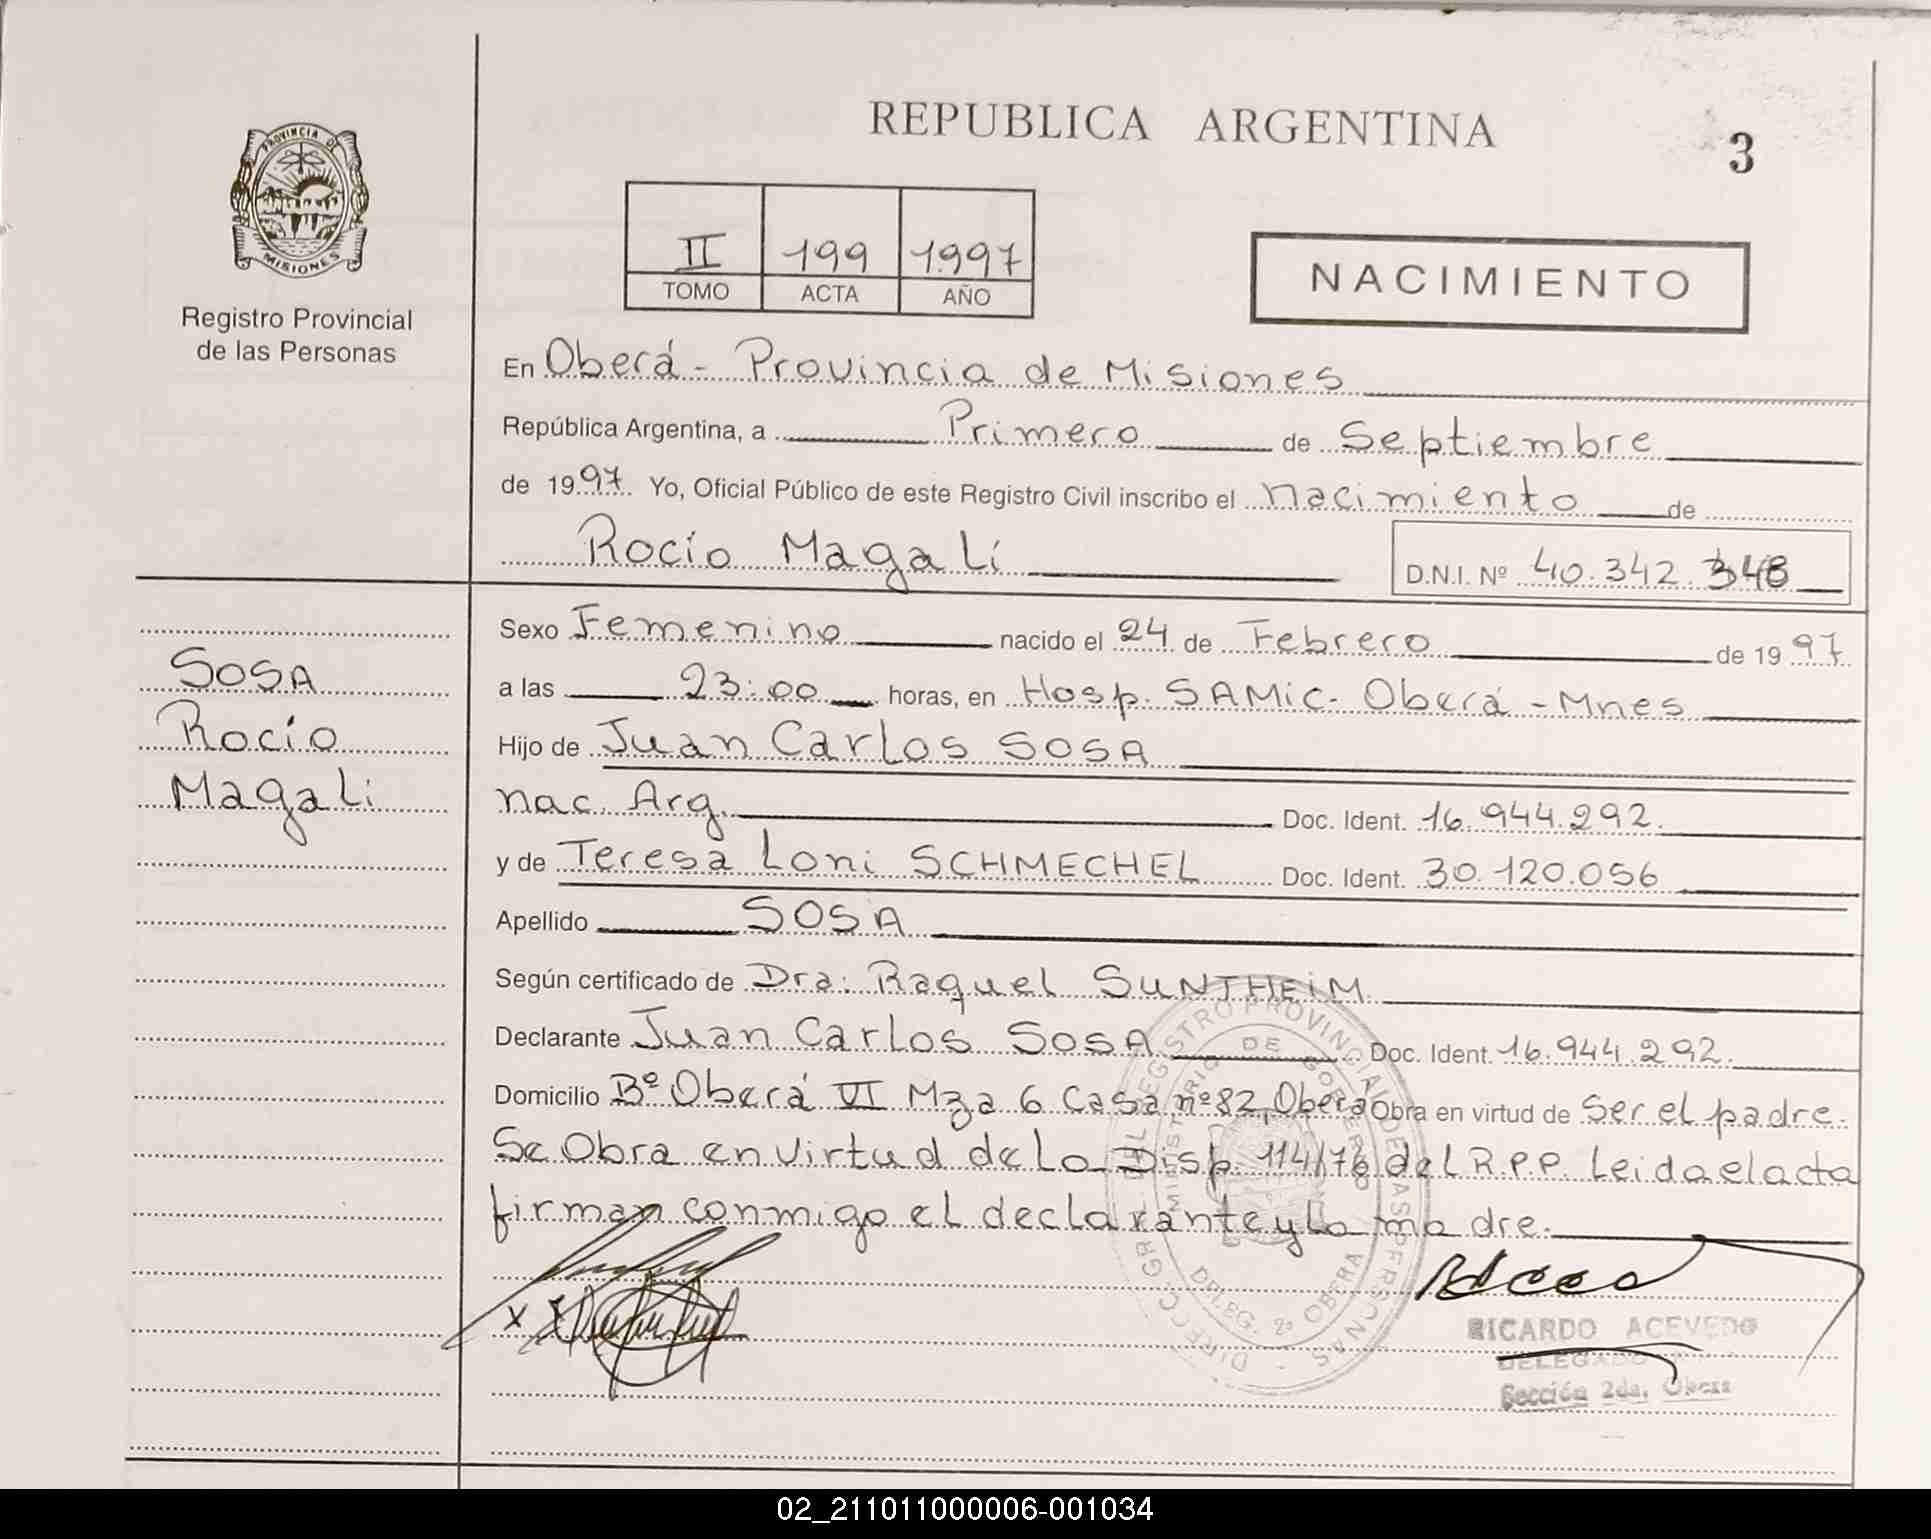 REPUBLICA ARGENTINA
3
PROVINCIA DE
MISIONES
Registro Provincial
de las Personas
II 199 1997
TOMO ACTA AÑO
NACIMIENTO
En Oberá - Provincia de Misiones
República Argentina, a Primero de Septiembre
de 1997. Yo, Oficial Público de este Registro Civil inscribo el nacimiento de
Rocío Magalí
D.N.I. Nº 40.342.348
SOSA
Rocío
Magalí
Sexo Femenino nacido el 24 de Febrero de 1997.
a las 23:00 horas, en Hosp. SAMic- Oberá - Mnes
Hijo de Juan Carlos SOSA
nac. Arg. Doc. Ident. 16.944.292.
y de Teresa Loni SCHMECHEL Doc. Ident. 30.120.056
Apellido SOSA
Según certificado de Dra: Raquel SUNTHEIM
Declarante Juan Carlos SOSA Doc. Ident. 16.944.292.
Domicilio Bº Oberá VI Mza 6 Casa nº 82, Oberá Obra en virtud de Ser el padre.
Se Obra en virtud de la Disp. 114/78 del R.P.P. Leida el acta
firman conmigo el declarante y la madre.
X
DIRECC. GRAL. DEL REGISTRO PROVINCIAL DE LAS PERSONAS
MINISTERIO DE GOBIERNO
DELEG. 2ª OBERA
RICARDO ACEVEDO
DELEGADO
Sección 2da. Obera
02_211011000006-001034